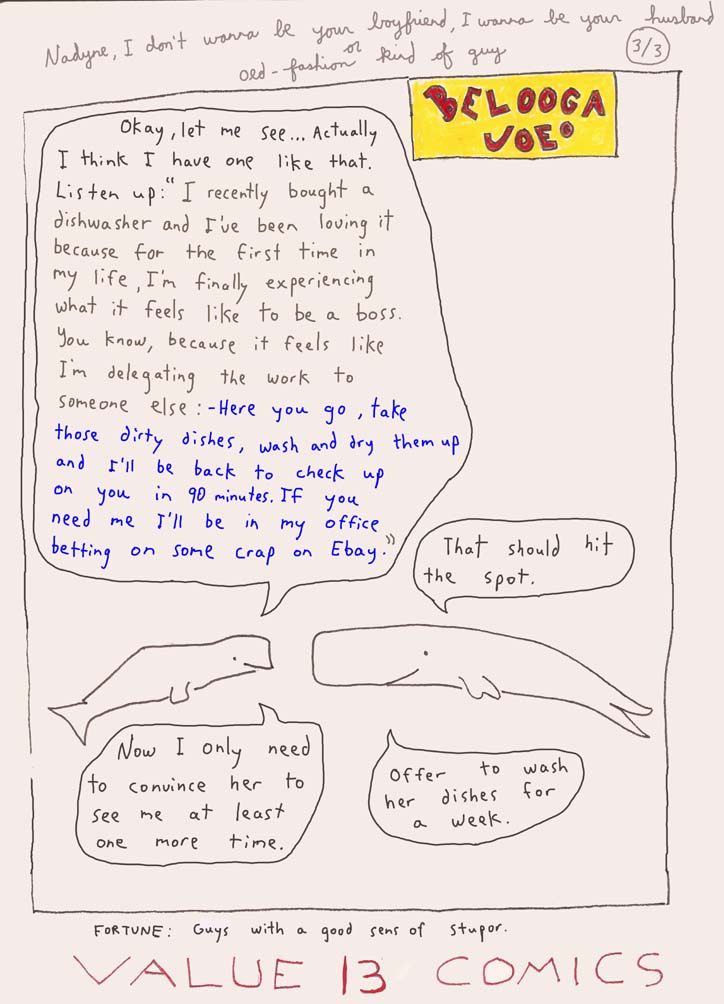 Nadyne, I don't wanna be your boyfriend, I wanna be your husband
or
oed-fashion kind of guy
3/3
BELOOGA
JOE
Okay, let me see... Actually
I think I have one like that.
Listen up: "I recently bought a
dishwasher and I've been loving it
because for the first time in
my life, I'm finally experiencing
what it feels like to be a boss.
You know, because it feels like
I'm delegating the work to
someone else: -Here you go, take
those dirty dishes, wash and dry them up
and I'll be back to check up
on you in 90 minutes. If you
need me I'll be in my office
betting on some crap on Ebay."
That should hit
the spot.
Now I only need
to convince her to
see me at least
one more time.
Offer to wash
her dishes for
a week.
FORTUNE: Guys with a good sens of stupor.
VALUE 13 COMICS